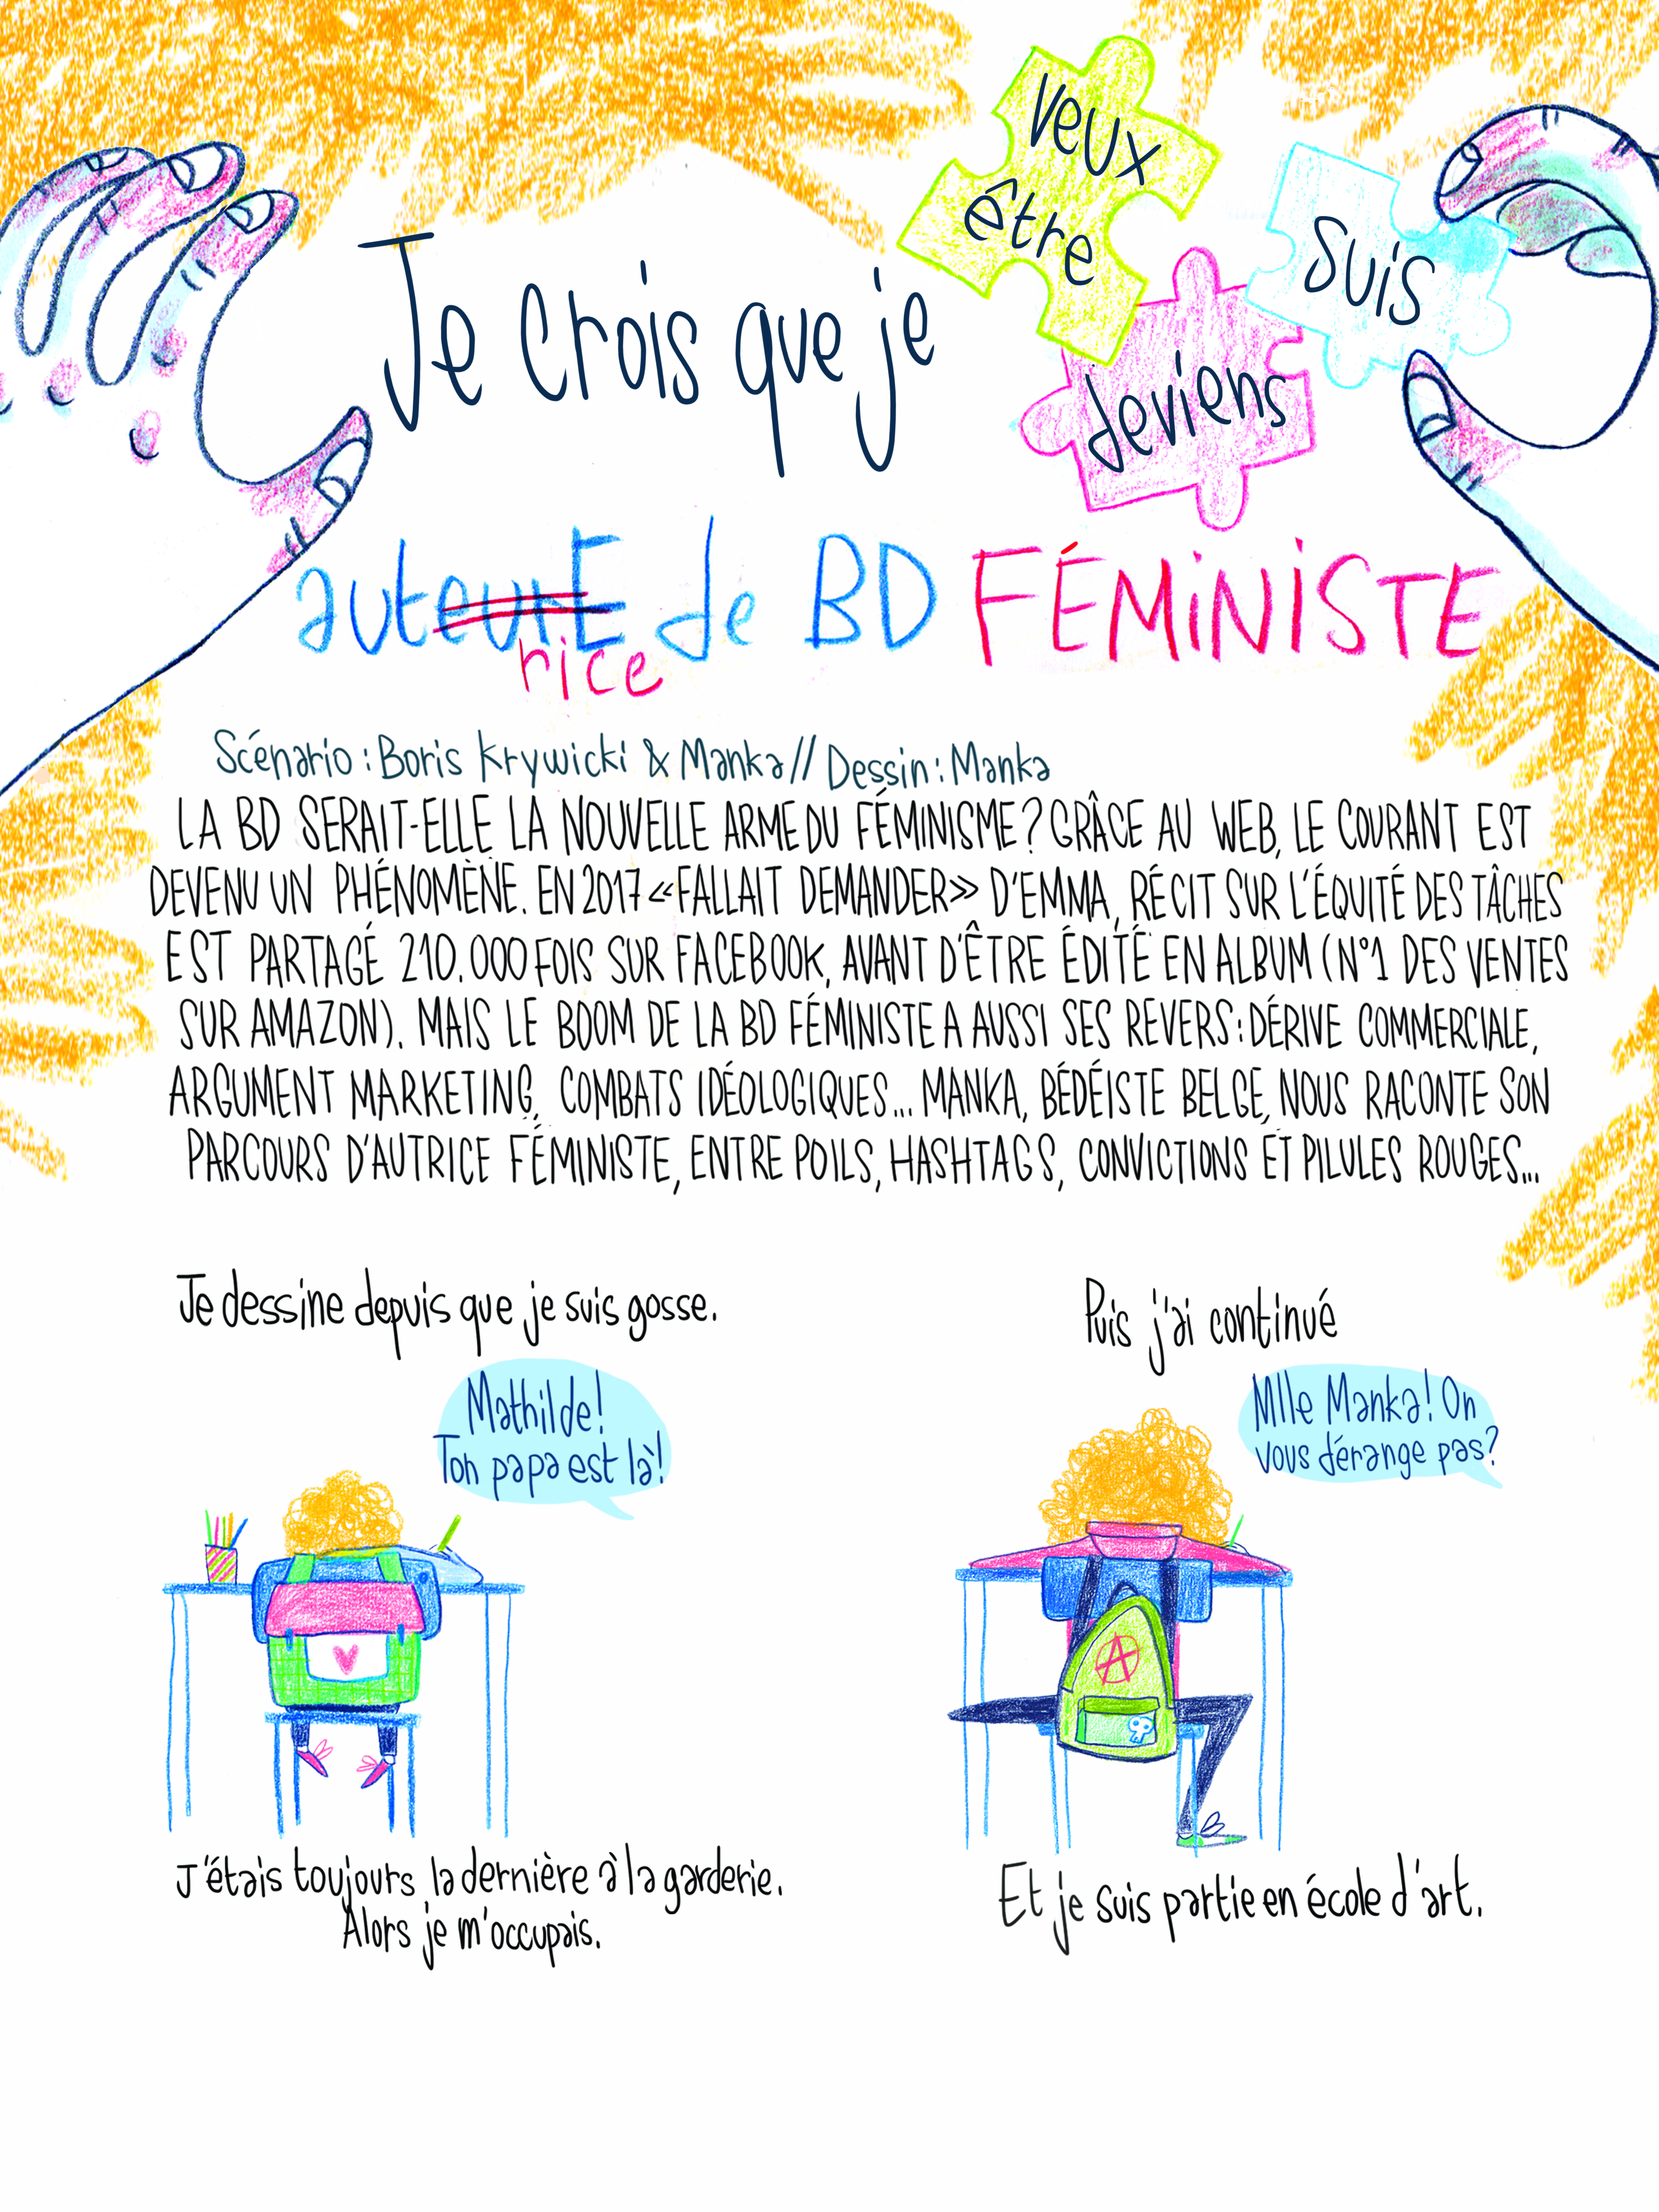 Je crois que je
veux
être
suis
deviens
auteurE de BD FÉMiNiSTE
rice
Scénario : Boris Krywicki & Manka // Dessin : Manka
LA BD SERAIT-ELLE LA NOUVELLE ARME DU FÉMINISME ? GRÂCE AU WEB, LE COURANT EST
DEVENU UN PHÉNOMÈNE. EN 2017 «FALLAIT DEMANDER» D'EMMA, RÉCIT SUR L'ÉQUITÉ DES TÂCHES
EST PARTAGÉ 210.000 FOIS SUR FACEBOOK, AVANT D'ÊTRE ÉDITÉ EN ALBUM (N°1 DES VENTES
SUR AMAZON). MAIS LE BOOM DE LA BD FÉMINISTE A AUSSI SES REVERS : DÉRIVE COMMERCIALE,
ARGUMENT MARKETING, COMBATS IDÉOLOGIQUES... MANKA, BÉDÉISTE BELGE, NOUS RACONTE SON
PARCOURS D'AUTRICE FÉMINISTE, ENTRE POILS, HASHTAGS, CONVICTIONS ET PILULES ROUGES...
Je dessine depuis que je suis gosse.
Mathilde !
Ton papa est là !
J'étais toujours la dernière à la garderie.
Alors je m'occupais.
Puis j'ai continué
Mlle Manka ! On
vous dérange pas ?
A
Et je suis partie en école d'art.